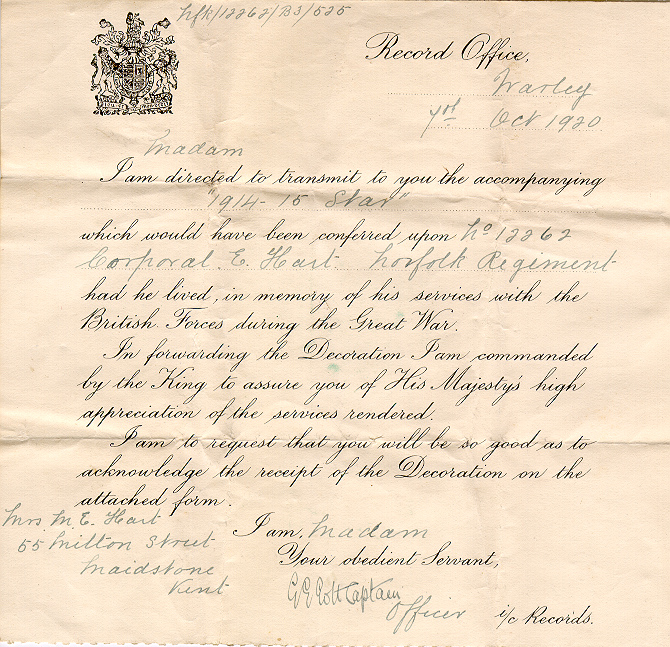 Nfk/12262/B3/525
Record Office,
Warley
Oct 1920
Madam
I am directed to transmit to you the accompanying
"1914-15 Star"
which would have been conferred upon No 12262
Corporal E. Hart Norfolk Regiment
had he lived, in memory of his services with the
British Forces during the Great War.
In forwarding the Decoration I am commanded
by the King to assure you of His Majesty's high
appreciation of the services rendered.
I am to request that you will be so good as to
acknowledge the receipt of the Decoration on the
attached form.
I am, Madam
Your obedient Servant,
Captain
Officer i/c Records.
Mrs. M. E. Hart
55 Milton Street
Maidstone
Kent